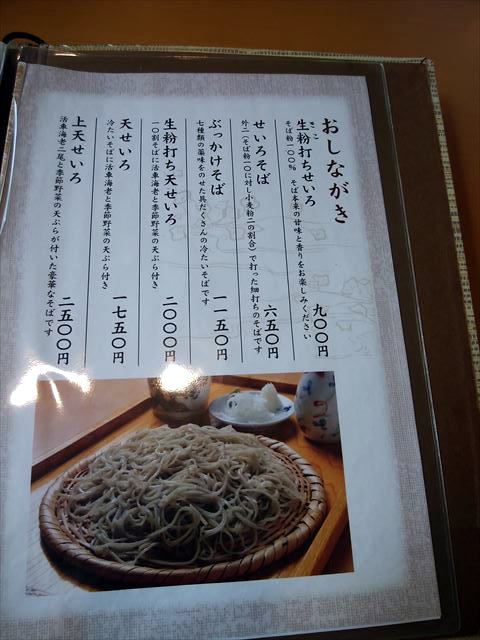 おしながき
きこ
生粉打ちせいろ 九〇〇円
そば粉一〇〇％ そば本来の甘味と香りをお楽しみください
せいろそば 六五〇円
外二（そば粉一〇に対し小麦粉二の割合）で打った細打ちのそばです
ぶっかけそば 一一五〇円
七種類の薬味をのせた具だくさんの冷たいそばです
生粉打ち天せいろ 二〇〇〇円
一〇割そばに活車海老と季節野菜の天ぷら付き
天せいろ 一七五〇円
冷たいそばに活車海老と季節野菜の天ぷら付き
上天せいろ 二五〇〇円
活車海老二尾と季節野菜の天ぷらが付いた豪華なそばです